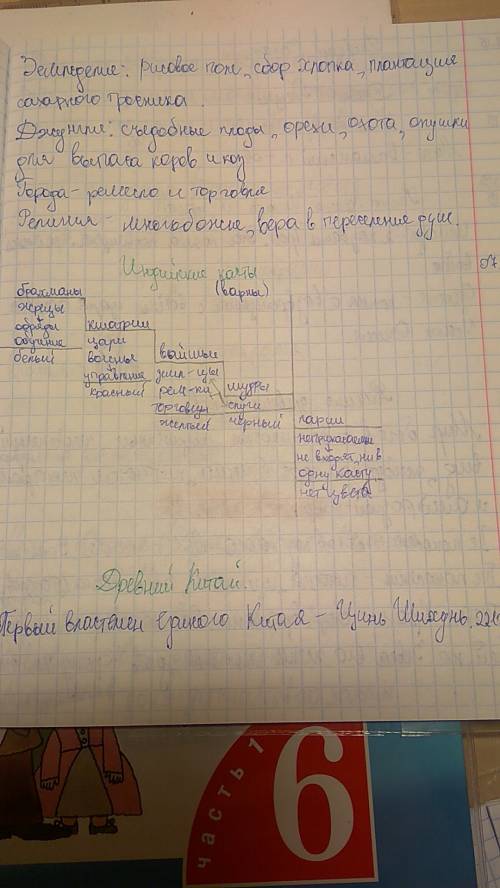 Земледелие: рисовое поле, сбор хлопка, плантации
сахарного тростника.
Джунгли: съедобные плоды, орехи, охота, опушки
для выпаса коров и коз
Города – ремесло и торговля
Религия – многобожие, вера в переселение душ.
Индийские касты
(варны)
брахманы
жрецы
обряды
обучение
белый
кшатрии
цари
воины
управление
красный
вайшьи
земл-цы
рем-ки
торговцы
желтый
шудры
слуги
чёрный
парии
неприкасаемые
не входят ни в
одну касту
нет цвета
Древний Китай.
Первый властелин Единого Китая – Цинь Шихуань, 221г
часть 1
6